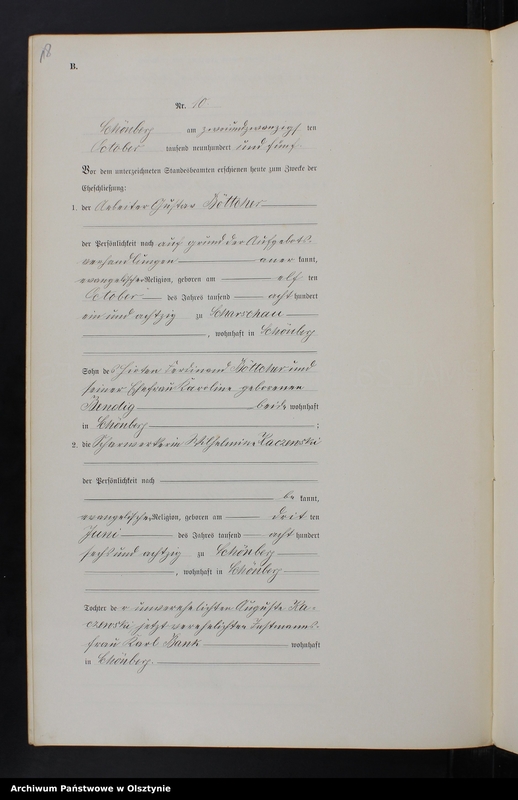 B.
Nr. 10
Schönberg am zweiundzwanzigsten
October tausend neunhundert und fünf
Vor dem unterzeichneten Standesbeamten erschienen heute zum Zwecke der
Eheschließung:
1. der Arbeiter Gustav Böttcher
der Persönlichkeit nach auf grund der Aufgebots-
verhandlungen anerkannt,
evangelischer Religion, geboren am elf ten
October des Jahres tausend acht hundert
ein und achtzig zu Scharschau
, wohnhaft in Schönberg
Sohn des Hirten Ferdinand Böttcher und
seiner Ehefrau Caroline geborenen
beide wohnhaft
in Schönberg ;
2. die Scharwerkerin Wilhelmine Kaczenski
der Persönlichkeit nach
be kannt,
evangelischer Religion, geboren am drit ten
Juni des Jahres tausend acht hundert
sechs und achtzig zu Schönberg
, wohnhaft in Schönberg
Tochter der unverehelichten Auguste Ka-
czenski jetzt verehelichten Instmanns-
frau Karl Bank wohnhaft
in Schönberg.
Archiwum Państwowe w Olsztynie